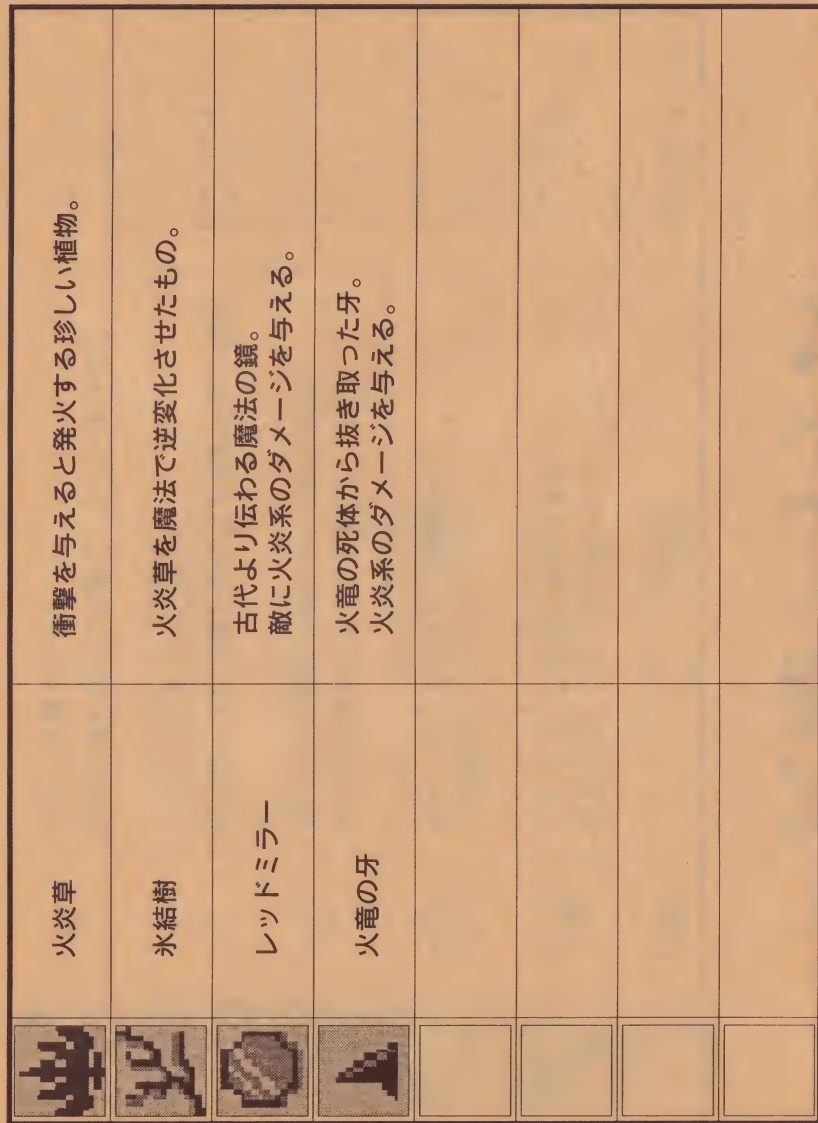 火炎草
衝撃を与えると発火する珍しい植物。
氷結樹
火炎草を魔法で逆変化させたもの。
レッドミラー
古代より伝わる魔法の鏡。
敵に火炎系のダメージを与える。
火竜の牙
火竜の死体から抜き取った牙。
火炎系のダメージを与える。